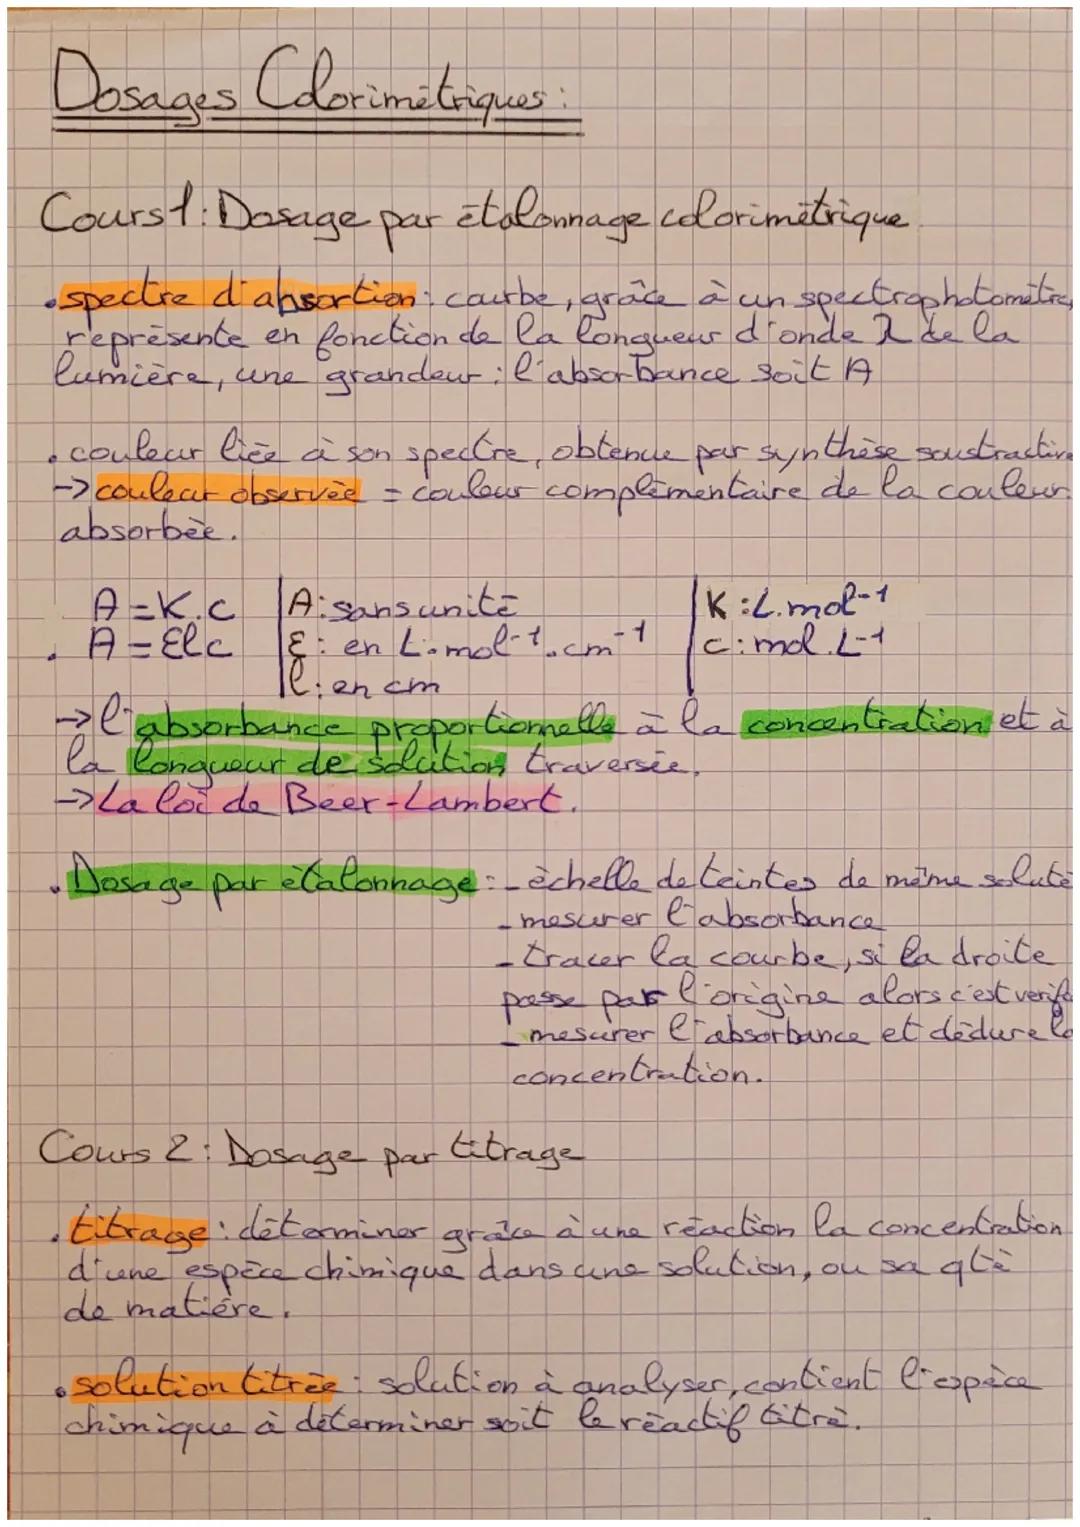 Dosages Colorimétriques :
Cours 1 : Dosage par étalonnage colorimétrique.
• spectre d'absortion : courbe, grâce à un spectrophotomètre,
représente en fonction de la longueur d'onde λ de la
lumière, une grandeur : l'absorbance soit A
• couleur liée à son spectre, obtenue par synthèse soustractive
-> couleur observée = couleur complémentaire de la couleur
absorbée.
A = K.c | A : sans unité | K : L.mol-1
• A = Elc | ε : en L.mol-1.cm-1 | c : mol.L-1
l : en cm
-> l'absorbance proportionnelle à la concentration et à
la longueur de solution traversée.
-> La loi de Beer-Lambert.
• Dosage par étalonnage : - échelle de teintes de même soluté
- mesurer l'absorbance
- tracer la courbe, si la droite
passe par l'origine alors c'est verifé
- mesurer l'absorbance et dédure la
concentration.
Cours 2 : Dosage par titrage
• titrage : déterminer grâce à une réaction la concentration
d'une espèce chimique dans une solution, ou sa qté
de matière.
• solution titrée : solution à analyser, contient l'espèce
chimique à déterminer soit le réactif titré.